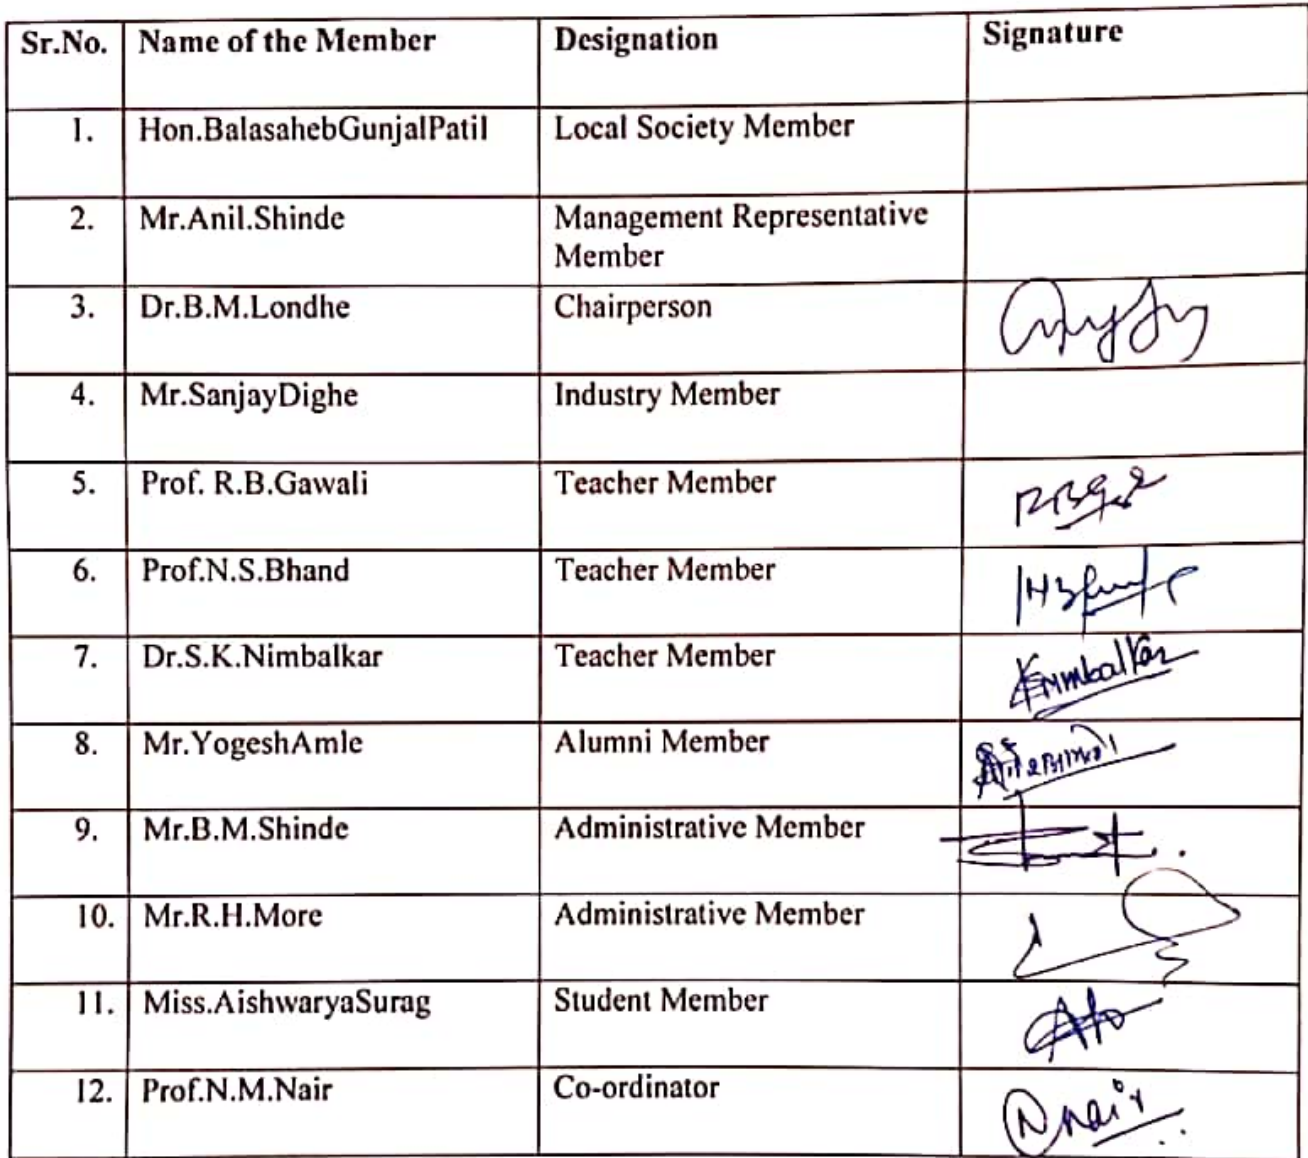 Sr.No. Name of the Member Designation Signature
1. Hon.BalasahebGunjalPatil Local Society Member
2. Mr.Anil.Shinde Management Representative
Member
3. Dr.B.M.Londhe Chairperson
4. Mr.SanjayDighe Industry Member
5. Prof. R.B.Gawali Teacher Member
6. Prof.N.S.Bhand Teacher Member
7. Dr.S.K.Nimbalkar Teacher Member
8. Mr.YogeshAmle Alumni Member
9. Mr.B.M.Shinde Administrative Member
10. Mr.R.H.More Administrative Member
11. Miss.AishwaryaSurag Student Member
12. Prof.N.M.Nair Co-ordinator Nair